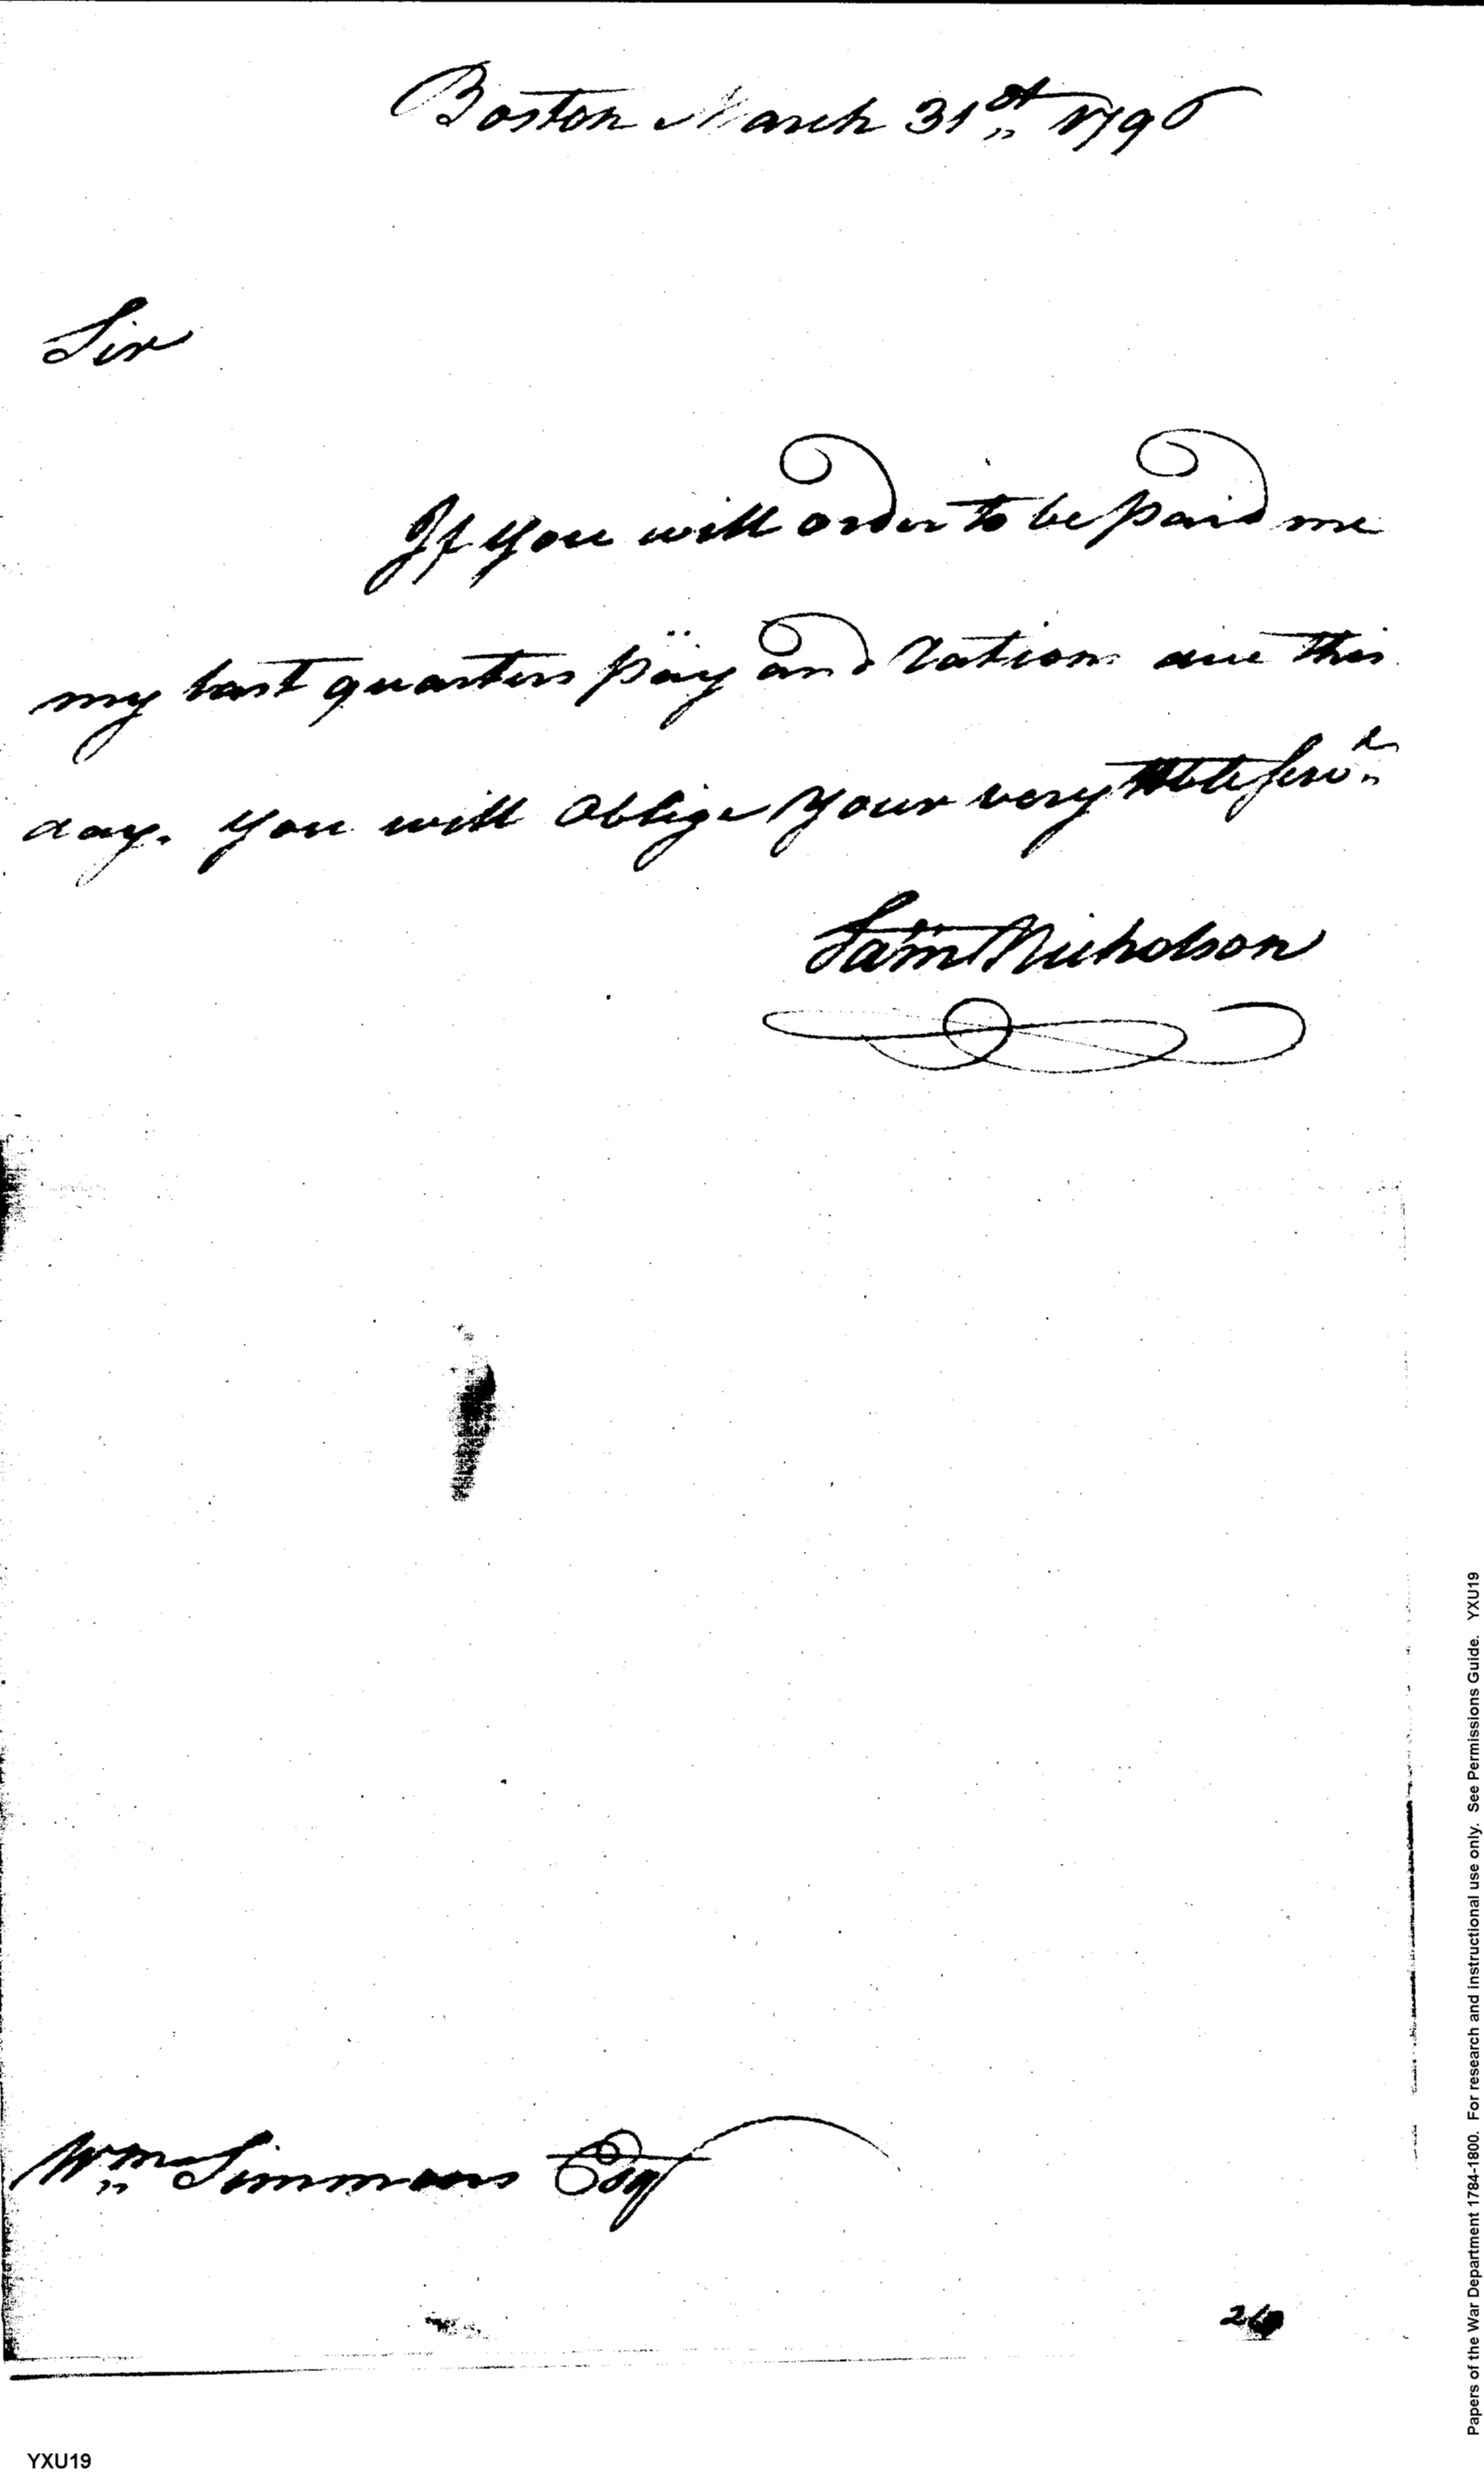 Boston March 31st 1796
Sir
If you will order to be paid me
my last quarters pay and Rations due this
day. you will oblige your very Hble Serv.t
Sam Nicholson
Wm Simmons Esq
Papers of the War Department 1784-1800. For research and instructional use only. See Permissions Guide. YXU19
YXU19